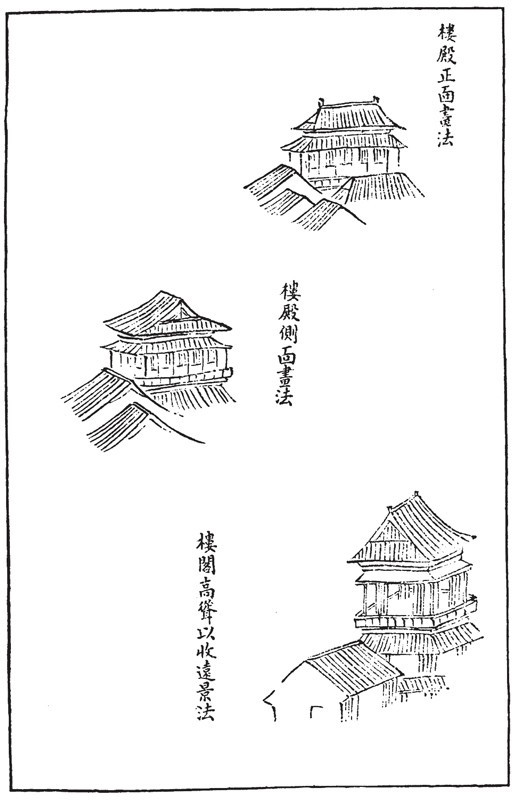 樓殿正面畫法
樓殿側面畫法
樓閣高聳以收遠景法